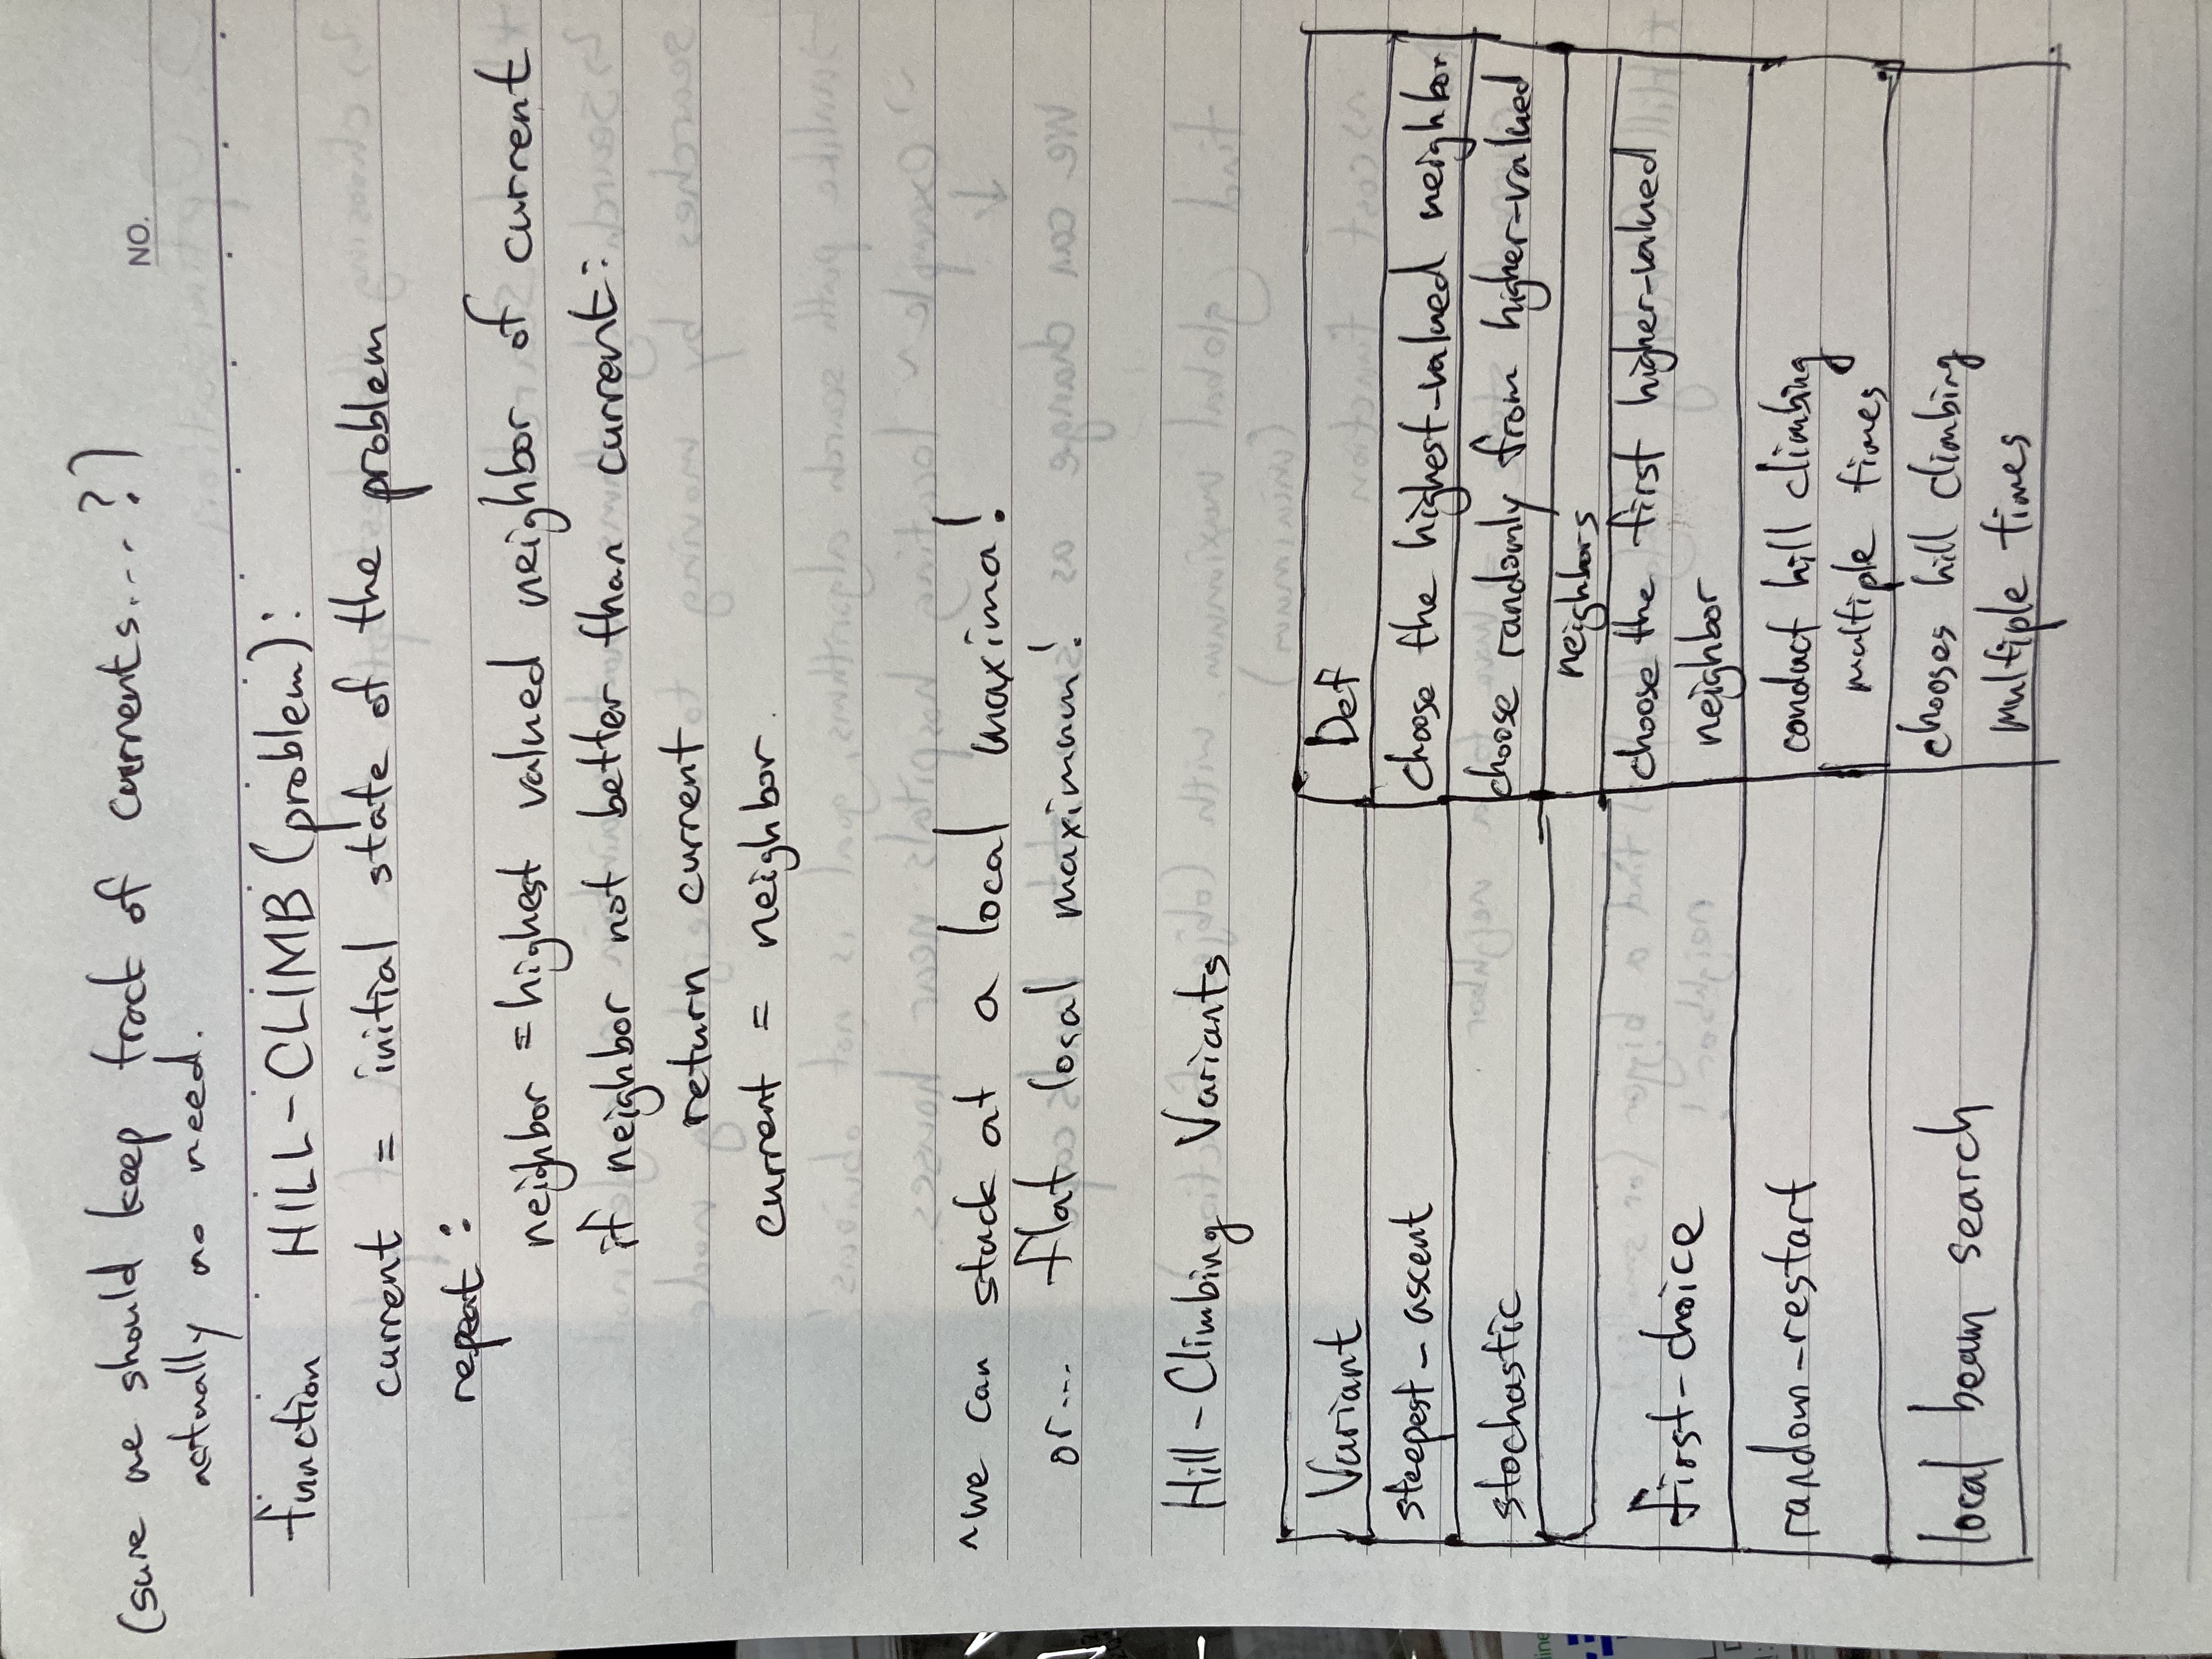 (sure we should keep track of currents....?)
actually no need.
NO.
function HILL-CLIMB (problem):
current = initial state of the problem
repeat:
neighbor = highest valued neighbor of current
if neighbor not better than current:
return current
current = neighbor.
~we can stuck at a local maxima!
or... flat local maximum!
Hill-Climbing Variants
Variant Def
steepest-ascent choose the highest-valued neighbor
stochastic choose randomly from higher-valued
neighbors
first-choice choose the first higher-valued
neighbor
random-restart conduct hill climbing
multiple times
local beam search chooses hill climbing
multiple times